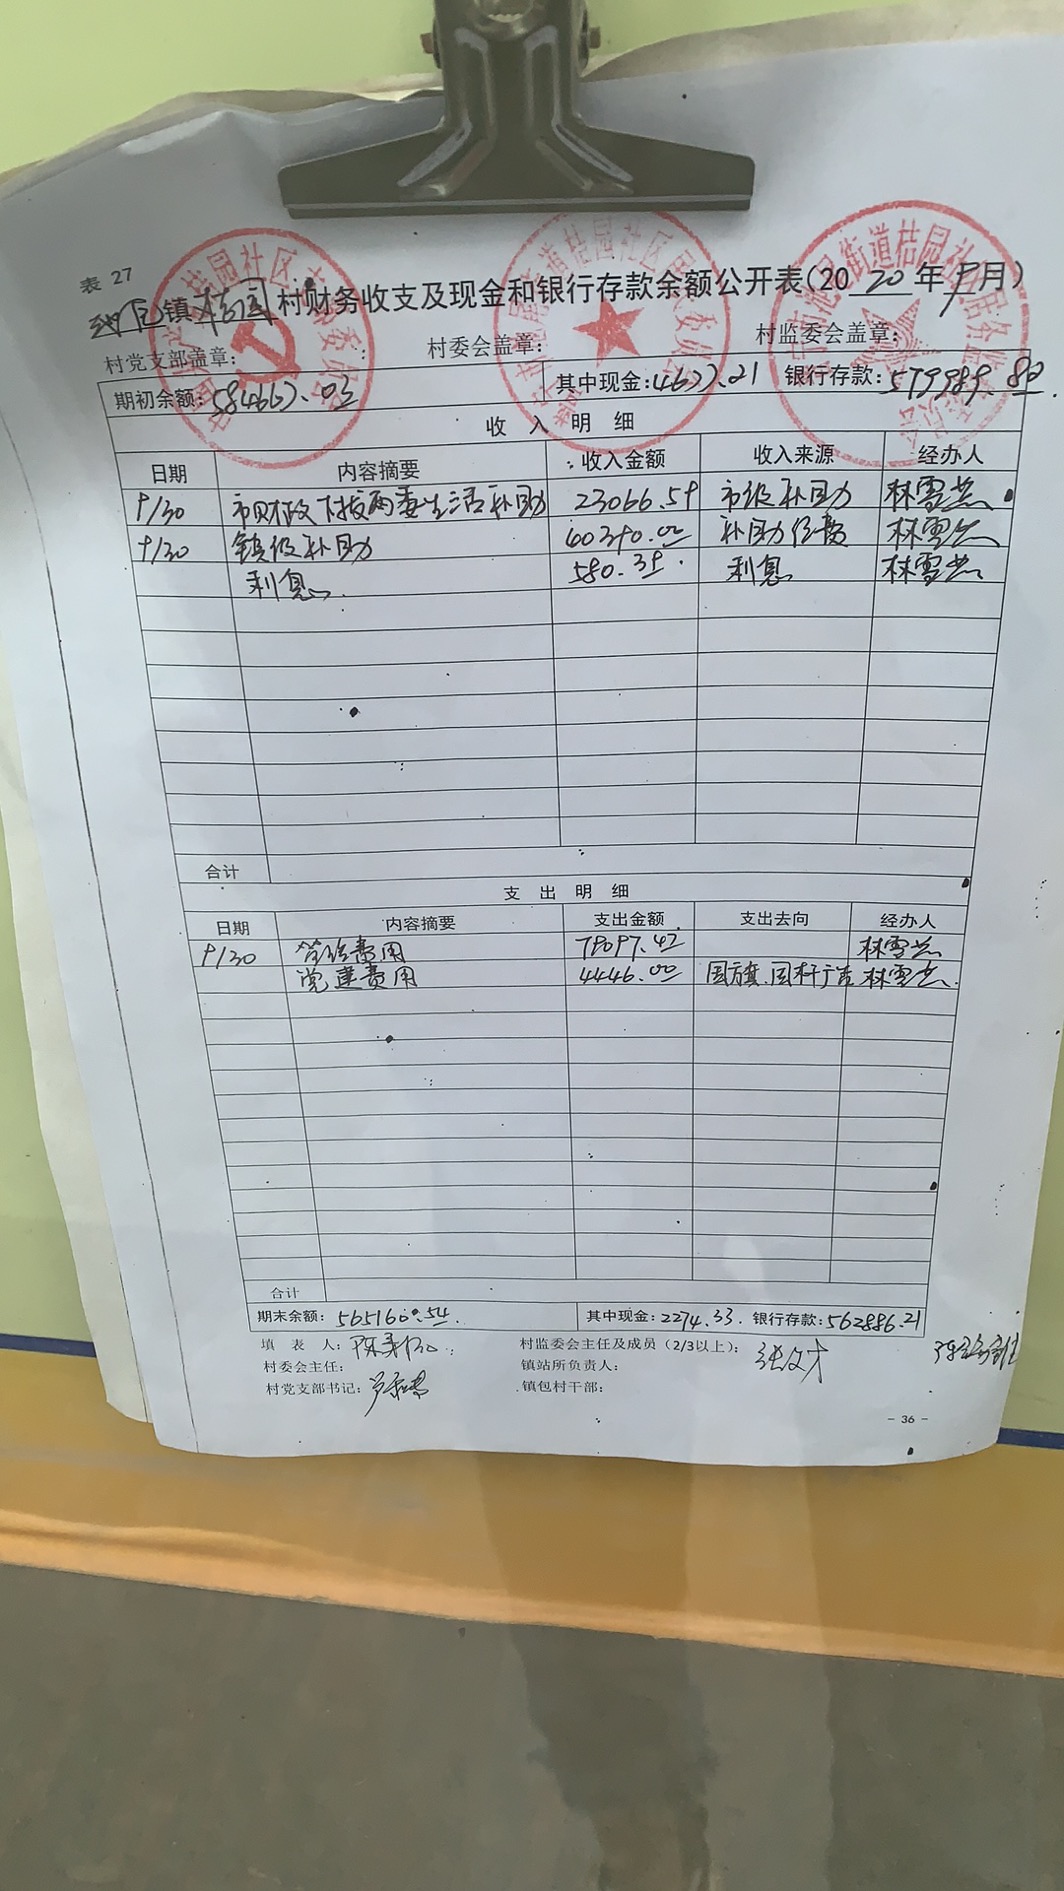 表 27
镇桔园村财务收支及现金和银行存款余额公开表(2020年9月)
村党支部盖章: 村委会盖章: 村监委会盖章:
期初余额: 584667.03 其中现金: 4677.21 银行存款: 579989.82
收 入 明 细
日期 内容摘要 收入金额 收入来源 经办人
9/30 市财政下拨两委生活补助 23066.59 市级补助 林雪兰
9/30 镇级补助 40390.00 补助经费 林雪兰
利息 580.39 利息 林雪兰
合计
支 出 明 细
日期 内容摘要 支出金额 支出去向 经办人
9/30 管理费用 79097.47 林雪兰
党建费用 4446.00 国旗.国杆广告 林雪兰
合计
期末余额: 565160.54 其中现金: 2274.33 银行存款: 562886.21
填 表 人: 村监委会主任及成员(2/3以上):
村委会主任: 镇站所负责人:
村党支部书记: 镇包村干部:
- 36 -